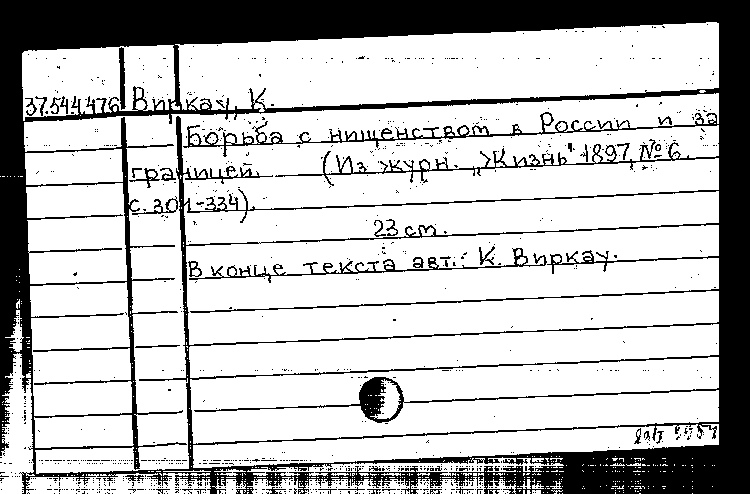 37.54.4.476 Виркау, К.
Борьба с нищенством в России и за
границей. (Из журн. „Жизнь" 1897, № 6.
с. 301-334).
23 cm.
В конце текста авт.: К. Виркау.